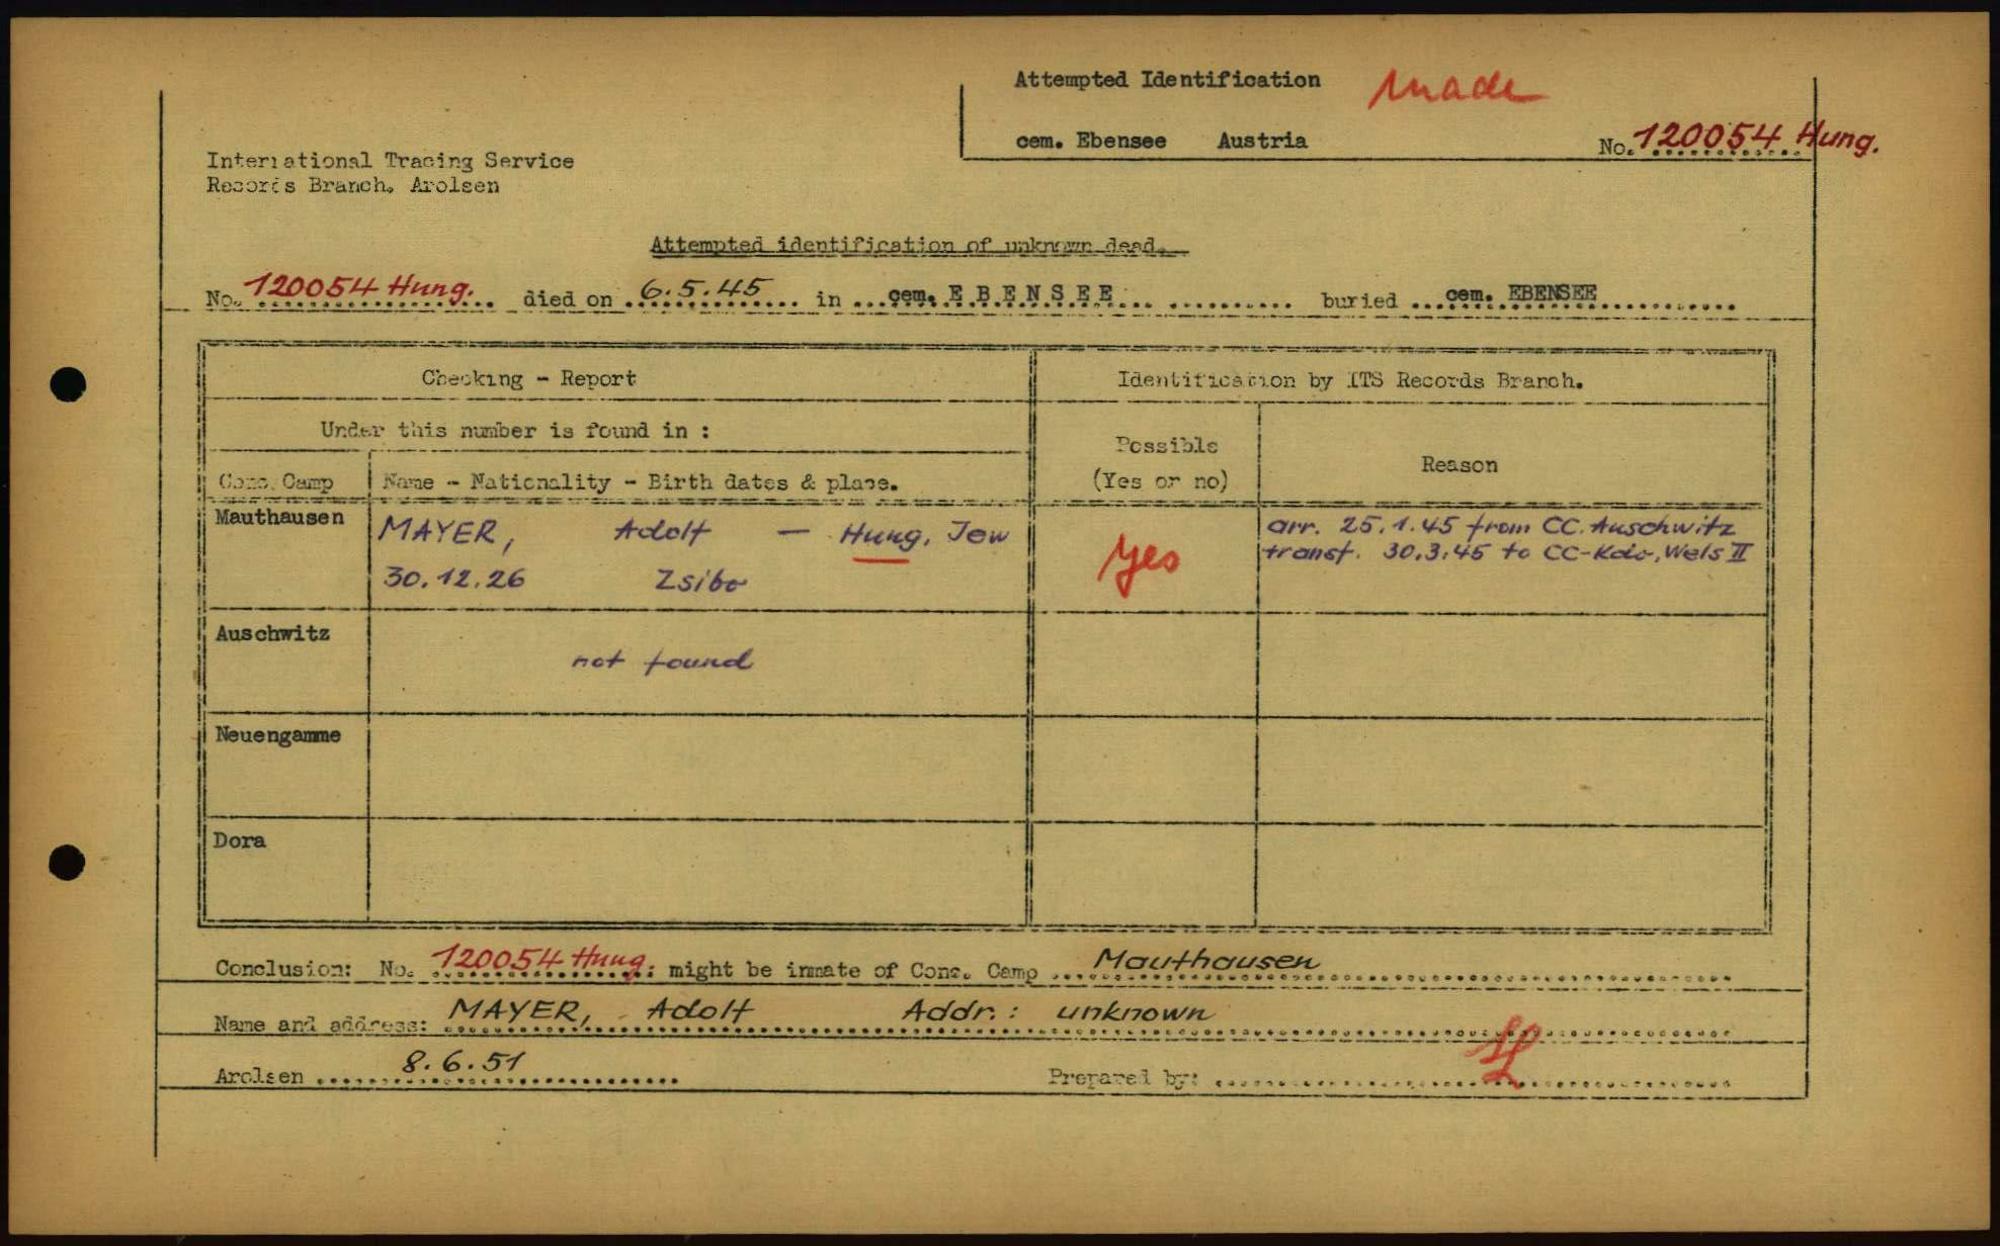 Attempted Identification made
cem. Ebensee Austria No. 120054 Hung.
International Tracing Service
Records Branch. Arolsen
Attempted identification of unknown dead.
No. 120054 Hung. died on 6.5.45 in cem. EBENSEE buried cem. EBENSEE
Checking - Report
Identification by ITS Records Branch.
Under this number is found in :
Possible
(Yes or no)
Reason
Conc. Camp Name - Nationality - Birth dates & place.
Mauthausen MAYER, Adolf — Hung. Jew
30.12.26 Zsibo
yes
arr. 25.1.45 from CC. Auschwitz
transf. 30.3.45 to CC-Kdo, Wels II
Auschwitz
not found
Neuengamme
Dora
Conclusion: No. 120054 Hung. might be inmate of Conc. Camp Mauthausen
Name and address: MAYER, Adolf Addr.: unknown
Arolsen 8.6.51 Prepared by: